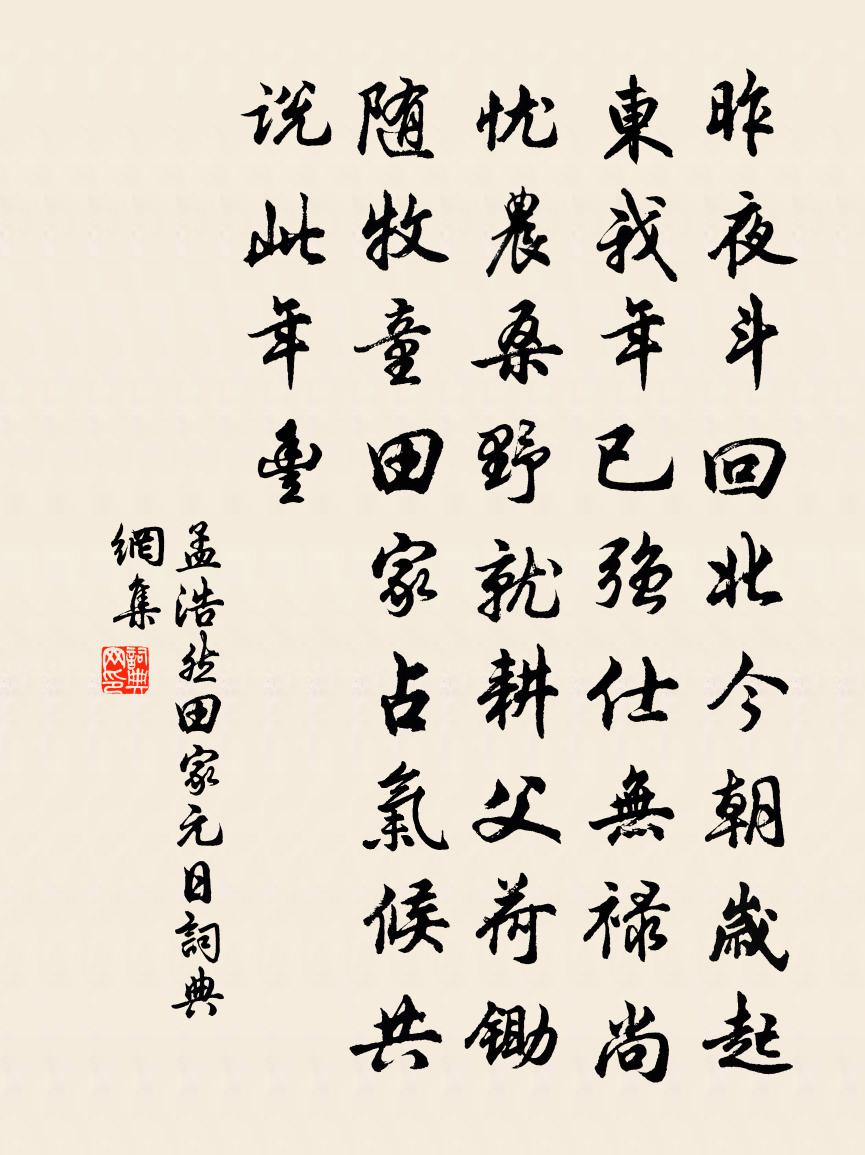 昨夜斗回北今朝歲起
東我年已強仕無祿尚
忧農桑野就耕父荷鋤
随牧童田家占氣候共
说此年豐
孟浩然田家元日詞典
網集
詞典
网印